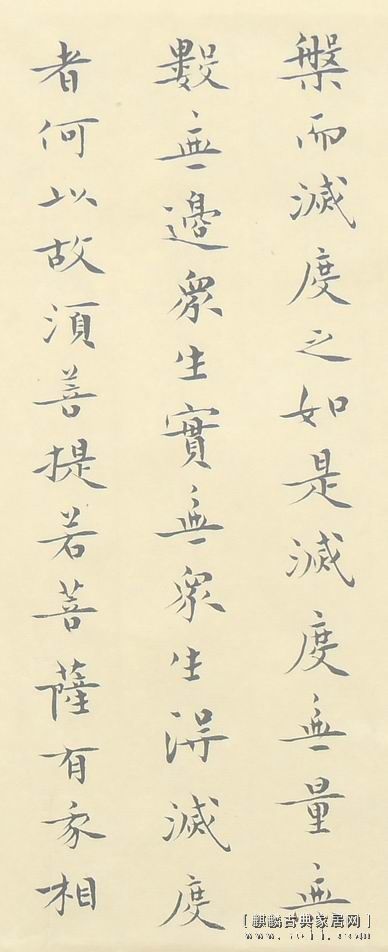 槃而滅度之如是滅度無量無
數無邊眾生實無眾生得滅度
者何以故須菩提若菩薩有我相
[麒麟古典家居网]